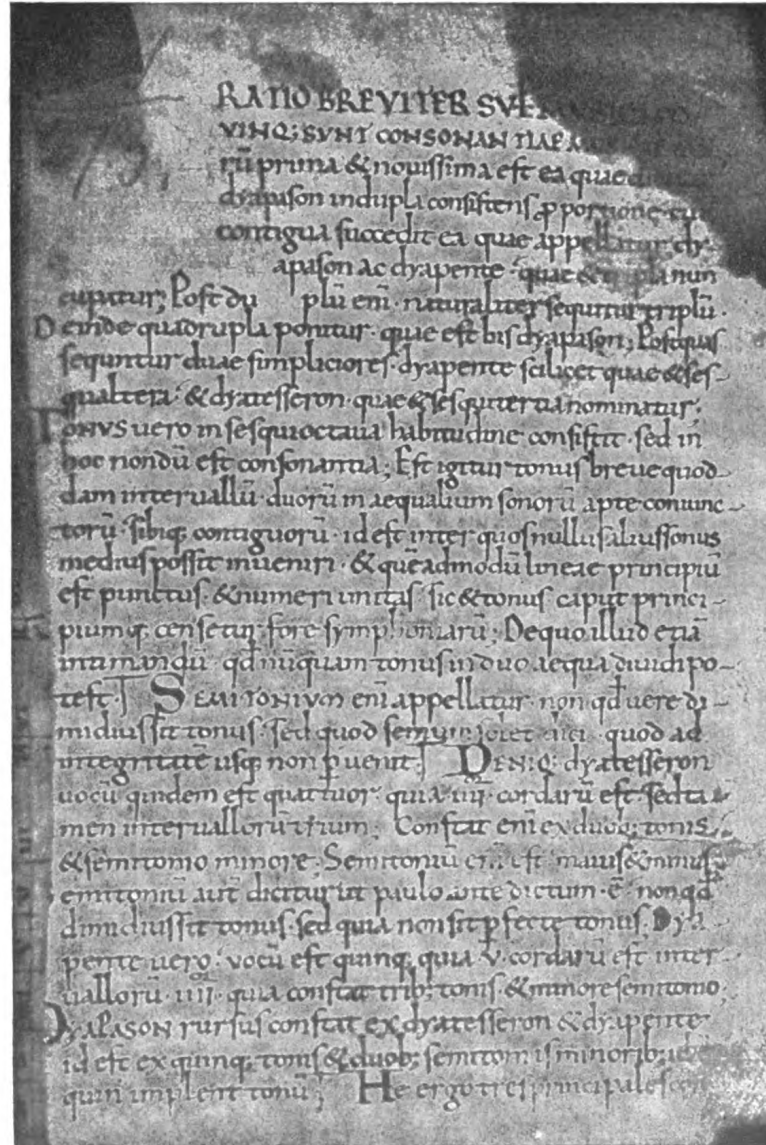 RATIO BREVITER SVP
VINQ; SVNT CONSONANTIAE
rū prima & nouissima est ea quae
dyapason in dupla consistens ꝓportione
contigua succedit ea quae appellatur dy
apason ac dyapente · quae & tripla nun
cupatur; Post du plū eni · naturaliter sequitur triplū ·
Deinde quadrupla ponitur · quae est bis dyapason; Post quas
sequntur duae simpliciores · dyapente scilicet quae & ses
qualtera · & dyatesseron · quae & sesquitertia nominatur ·
TONVS uero in sesquioctaua habitudine consistit · sed in
hoc nondū est consonantia; Est igitur tonus breue quod-
dam interuallū · duorū inaequalium sonorū apte coniunc-
torū · sibiq; contiguorū · id est inter quos nullus alius sonus
medius possit inueniri · & quēadmodū lineae principiū
est punctus · & numeri unitas · sic & tonus caput princi-
piumq; censetur fore symphoniarū; De quo illud etiā
intimandū · qd nūquam tonus in duo aequa diuidi po-
test; SEMITONIVM eni appellatur · non qd uere di-
midius sit tonus · sed quod semum solet dici quod ad
integritatē usq; non puenit; DENIQ; dyatesseron
uocū quidem est quattuor · quia IIII cordarū est · sed ta-
men interuallorū trium; Constat eni ex duob; tonis
& semitonio minore; Semitoniū eni est maius & minus
emitoniū aut dicitur ut paulo ante dictum · ē · non qd
dimidius sit tonus · sed quia non sit pfecte tonus; Dya
pente uero · uocū est quinq; quia V · cordarū est inter
uallorū · IIII · quia constat trib; tonis & minore semitonio;
DYAPASON rursus constat ex dyatesseron & dyapente
id est ex quinq; tonis & duob; semitoniis minorib;
qui n implent tonū; He ergo tres principales